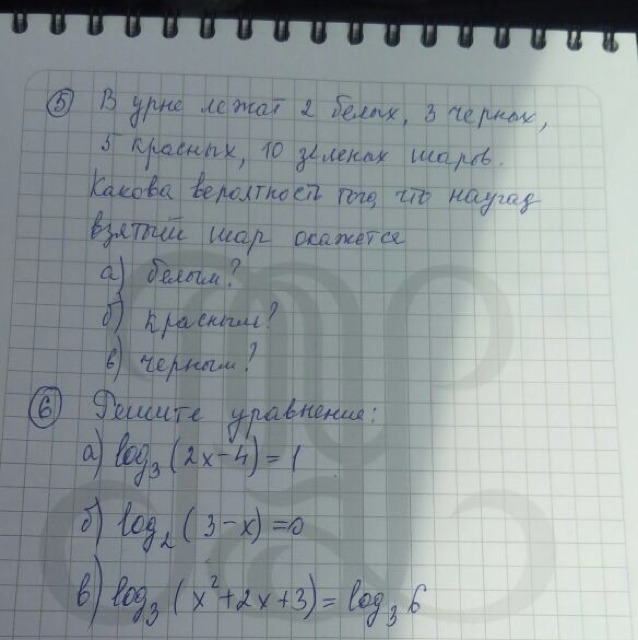 ⑤ В урне лежат 2 белых, 3 черных,
5 красных, 10 зеленых шаров.
Какова вероятность того, что наугад
взятый шар окажется
а) белым?
б) красным?
в) черным?
⑥ Решите уравнение:
а) log₃(2x-4)=1
б) log₂(3-x)=0
в) log₃(x²+2x+3)=log₃6